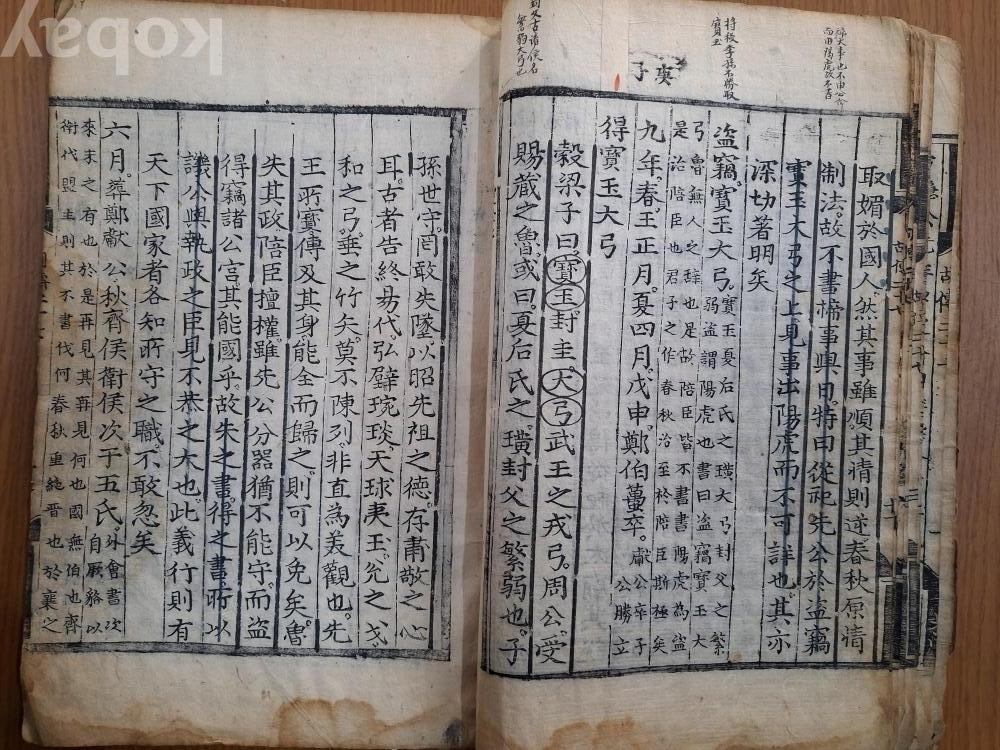 取媚於國人然其事雖順其情則逆春秋原情
制法故不書禘事與日特曰從祀先公於盜竊
寶玉大弓之上見事出陽虎而不可詳也其亦
深切著明矣
盜竊寶玉大弓寶玉夏后氏之璜大弓封父之繁
弱盜謂陽虎也書曰盜竊寶玉大
弓魯無人之辭也是故陪臣皆不書書陽虎為盜
是治陪臣也君子之作春秋治至於陪臣斯極矣
九年春王正月夏四月戊申鄭伯蠆卒獻公卒子
公勝立
得寶玉大弓
穀梁子曰寶玉封圭大弓武王之戎弓周公受
賜藏之魯或曰夏后氏之璜封父之繁弱也子
孫世守罔敢失墜以昭先祖之德存肅敬之心
耳古者告終易代弘璧琬琰天球夷玉兊之戈
和之弓垂之竹矢莫不陳列非直為美觀也先
王所寶傳及其身能全而歸之則可以免矣魯
失其政陪臣擅權雖先公分器猶不能守而盜
得竊諸公宮其能國乎故失之書得之書所以
譏公與執政之臣見不恭之大也此義行則有
天下國家者各知所守之職不敢忽矣
六月葬鄭獻公秋齊侯衛侯次于五氏外會書次
自厥貉以
來未之有也於是再見其再見何也國無伯也齊
衛代盟主則其不書伐何春秋重絶晋也於襄之
庚子
kopay